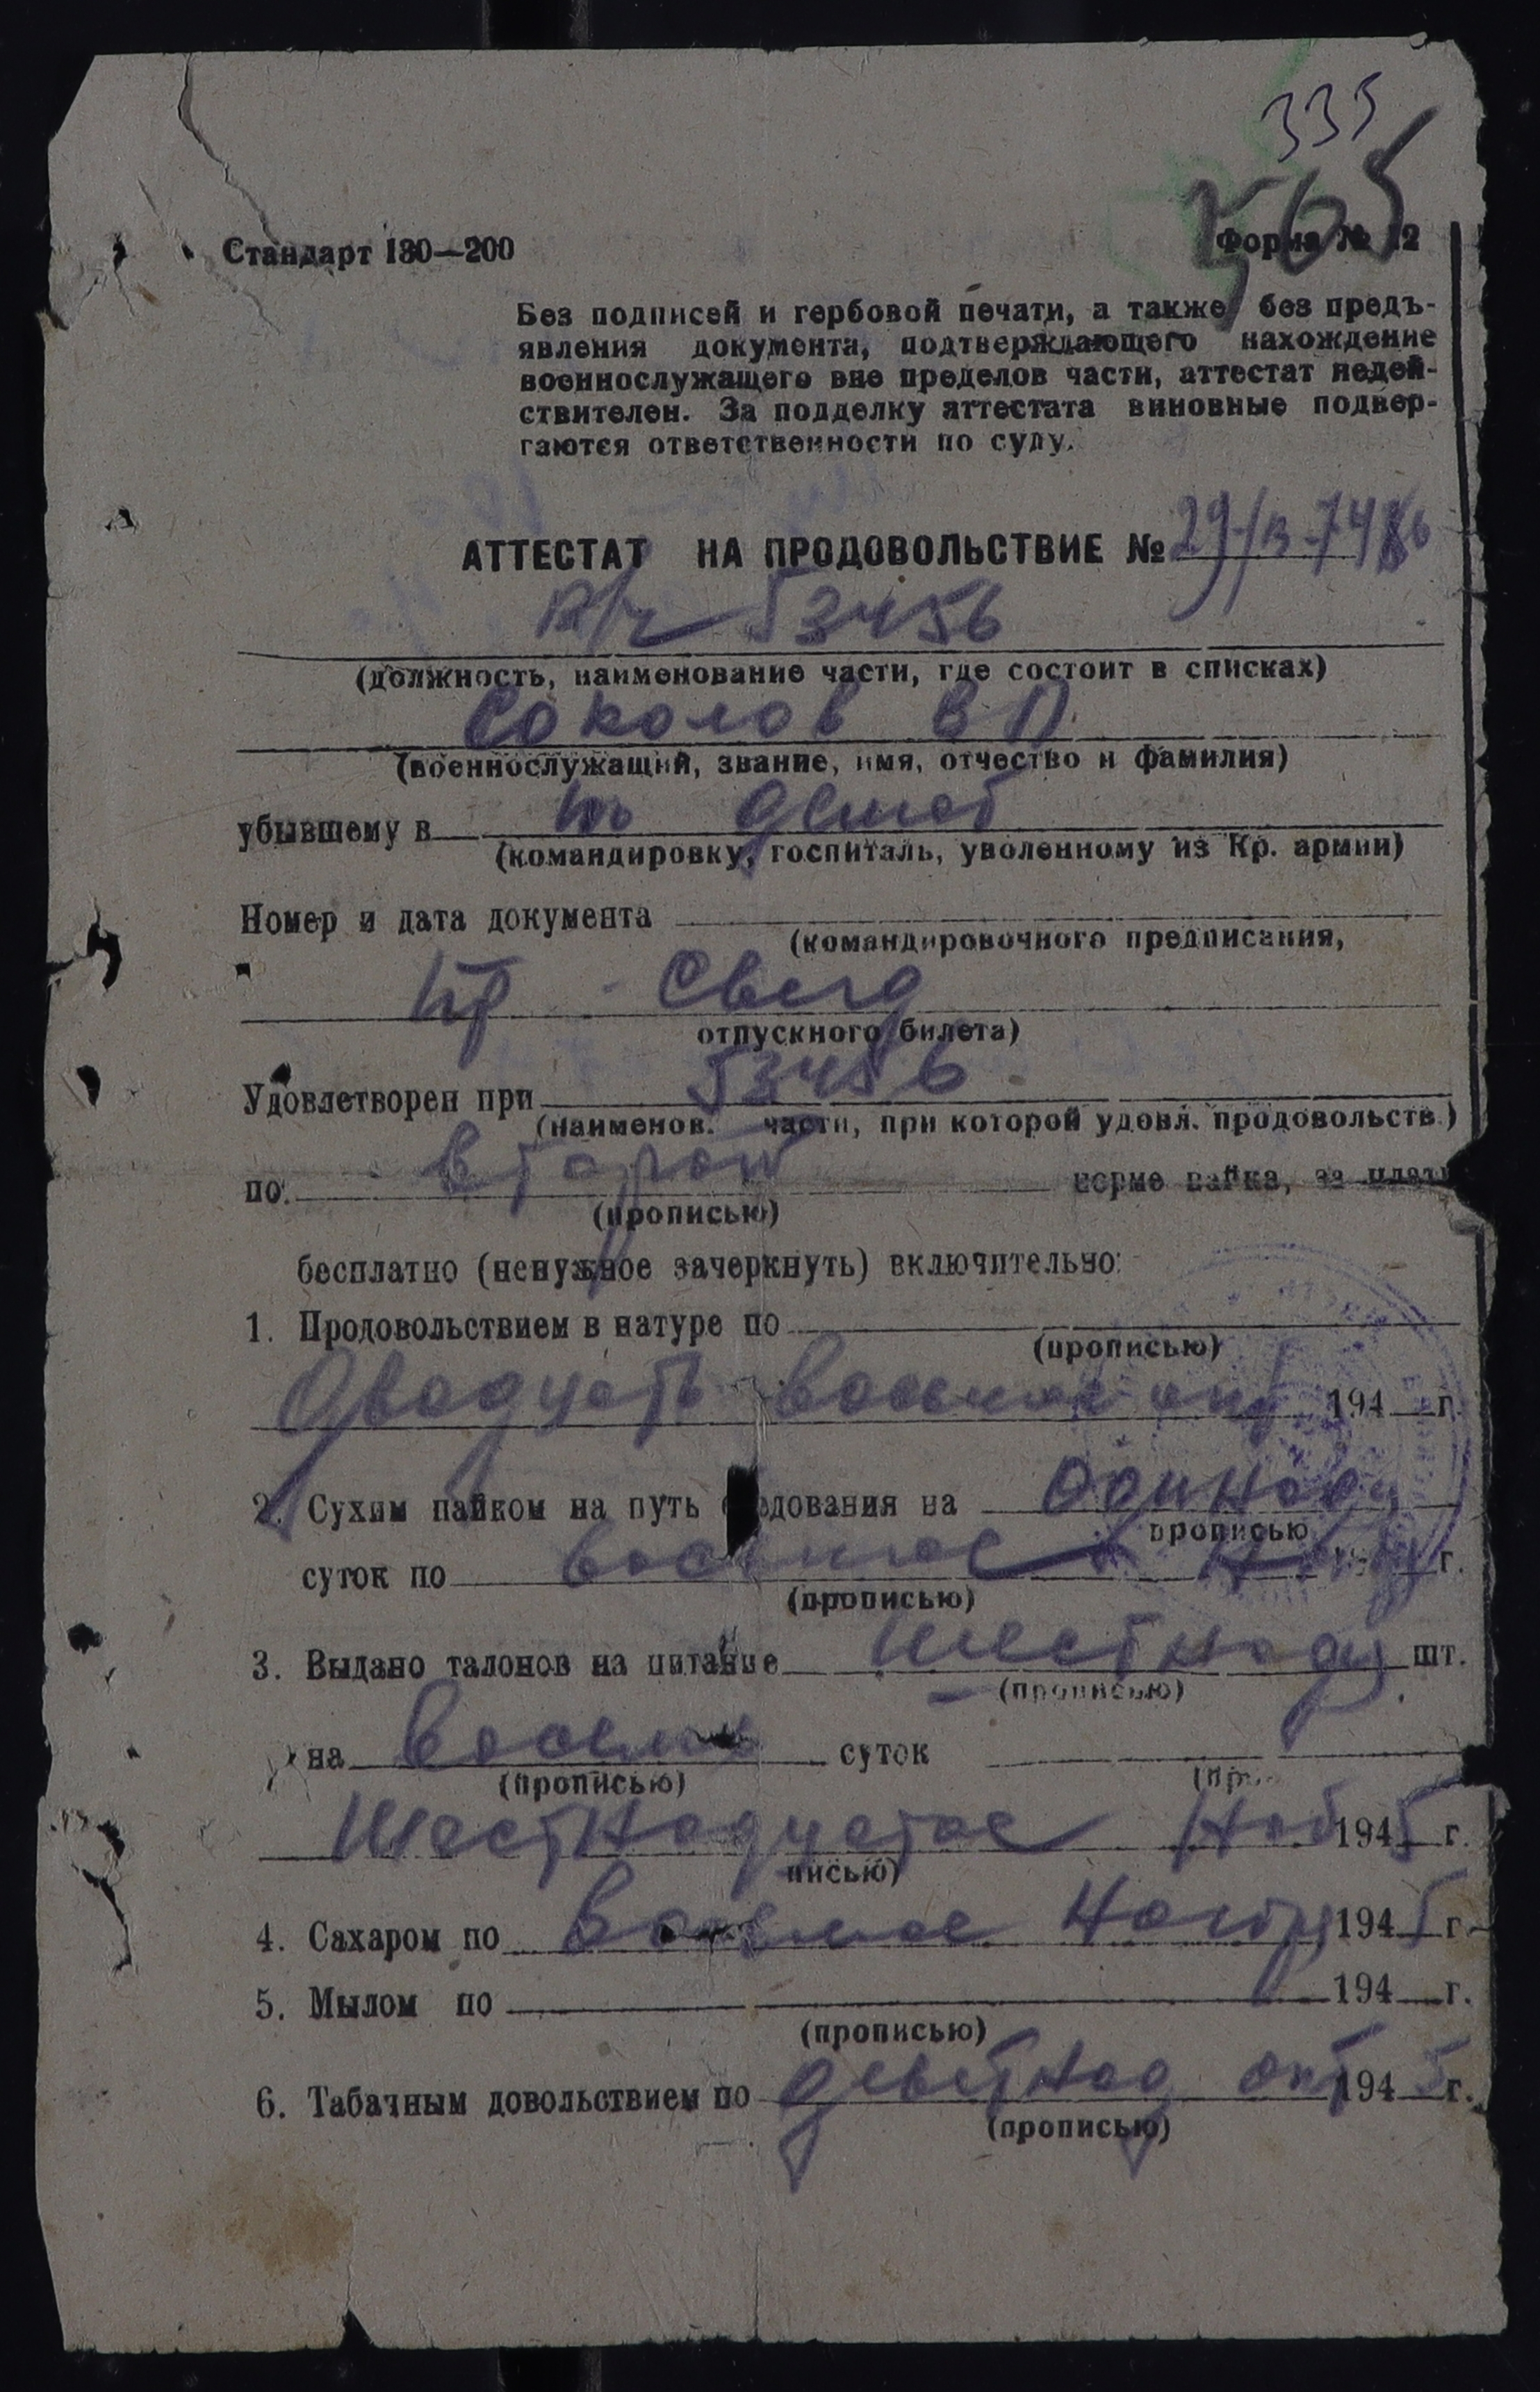 335
565
Стандарт 130—200
Форма № 12
Без подписей и гербовой печати, а также без предъ-
явления документа, подтверждающего нахождение
военнослужащего вне пределов части, аттестат недей-
ствителен. За подделку аттестата виновные подвер-
гаются ответственности по суду.
АТТЕСТАТ НА ПРОДОВОЛЬСТВИЕ №
В/ч 53456
(должность, наименование части, где состоит в списках)
Соколов В П
(военнослужащий, звание, имя, отчество и фамилия)
убывшему в по демоб
(командировку, госпиталь, уволенному из Кр. армии)
Номер и дата документа
(командировочного предписания,
Сверд
отпускного билета)
Удовлетворен при 53456
(наименов. части, при которой удовл. продовольств.)
по второй норме пайка, за плату
(прописью)
бесплатно (ненужное зачеркнуть) включительно:
1. Продовольствием в натуре по
(прописью)
Двадцать восьмое окт 194 г.
2. Сухим пайком на путь следования на Одиннадц
прописью
суток по восьмое Нояб г.
(прописью)
3. Выдано талонов на питание шестнадц шт.
(прописью)
на восемь суток
(прописью) (пр
Шестнадцатое Нояб 1945 г.
писью)
4. Сахаром по Восьмое Ноября 1945 г.
5. Мылом по 194 г.
(прописью)
6. Табачным довольствием по девятнад окт 1945 г.
(прописью)